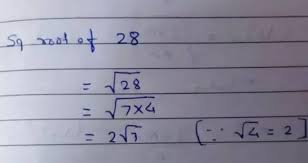 Sq root of 28
= √28
= √7×4
= 2√7 [∵ √4 = 2]